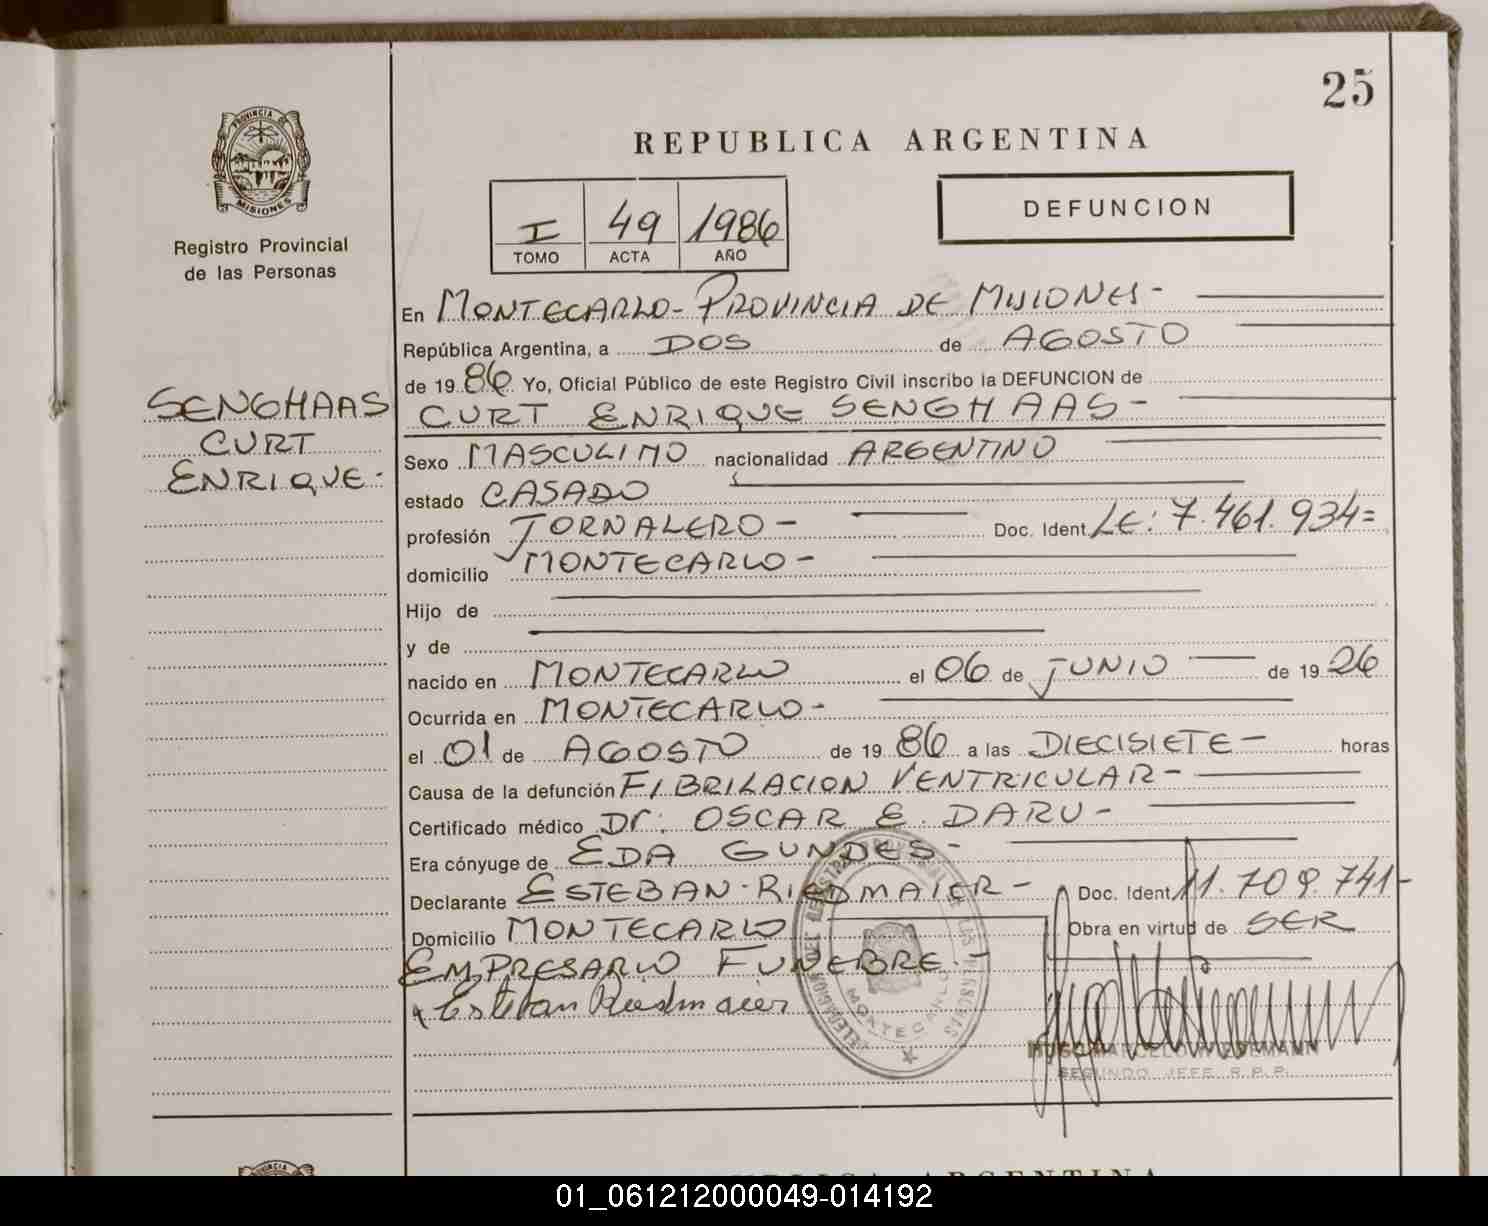 25
REPUBLICA ARGENTINA
PROVINCIA DE
MISIONES
Registro Provincial
de las Personas
I 49 1986
TOMO ACTA AÑO
DEFUNCION
SENGHAAS
CURT
ENRIQUE-
En MONTECARLO-PROVINCIA DE MISIONES-
República Argentina, a DOS de AGOSTO
de 1986 Yo, Oficial Público de este Registro Civil inscribo la DEFUNCION de
CURT ENRIQUE SENGHAAS-
Sexo MASCULINO nacionalidad ARGENTINO
estado CASADO
profesión JORNALERO- Doc. Ident. LE: 7.461.934=
domicilio MONTECARLO-
Hijo de
y de
nacido en MONTECARLO el 06 de JUNIO de 1926
Ocurrida en MONTECARLO-
el 01 de AGOSTO de 1986 a las DIECISIETE- horas
Causa de la defunción FIBRILACION VENTRICULAR-
Certificado médico Dr: OSCAR E. DARU-
Era cónyuge de EDA GUNDES-
Declarante ESTEBAN-RIEDMAIER- Doc. Ident. 11.709.741-
Domicilio MONTECARLO Obra en virtud de SER
EMPRESARIO FUNEBRE-
x Esteban Riedmaier
MONTECARLO
SEGUNDO JEFE R.P.P.
01_061212000049-014192